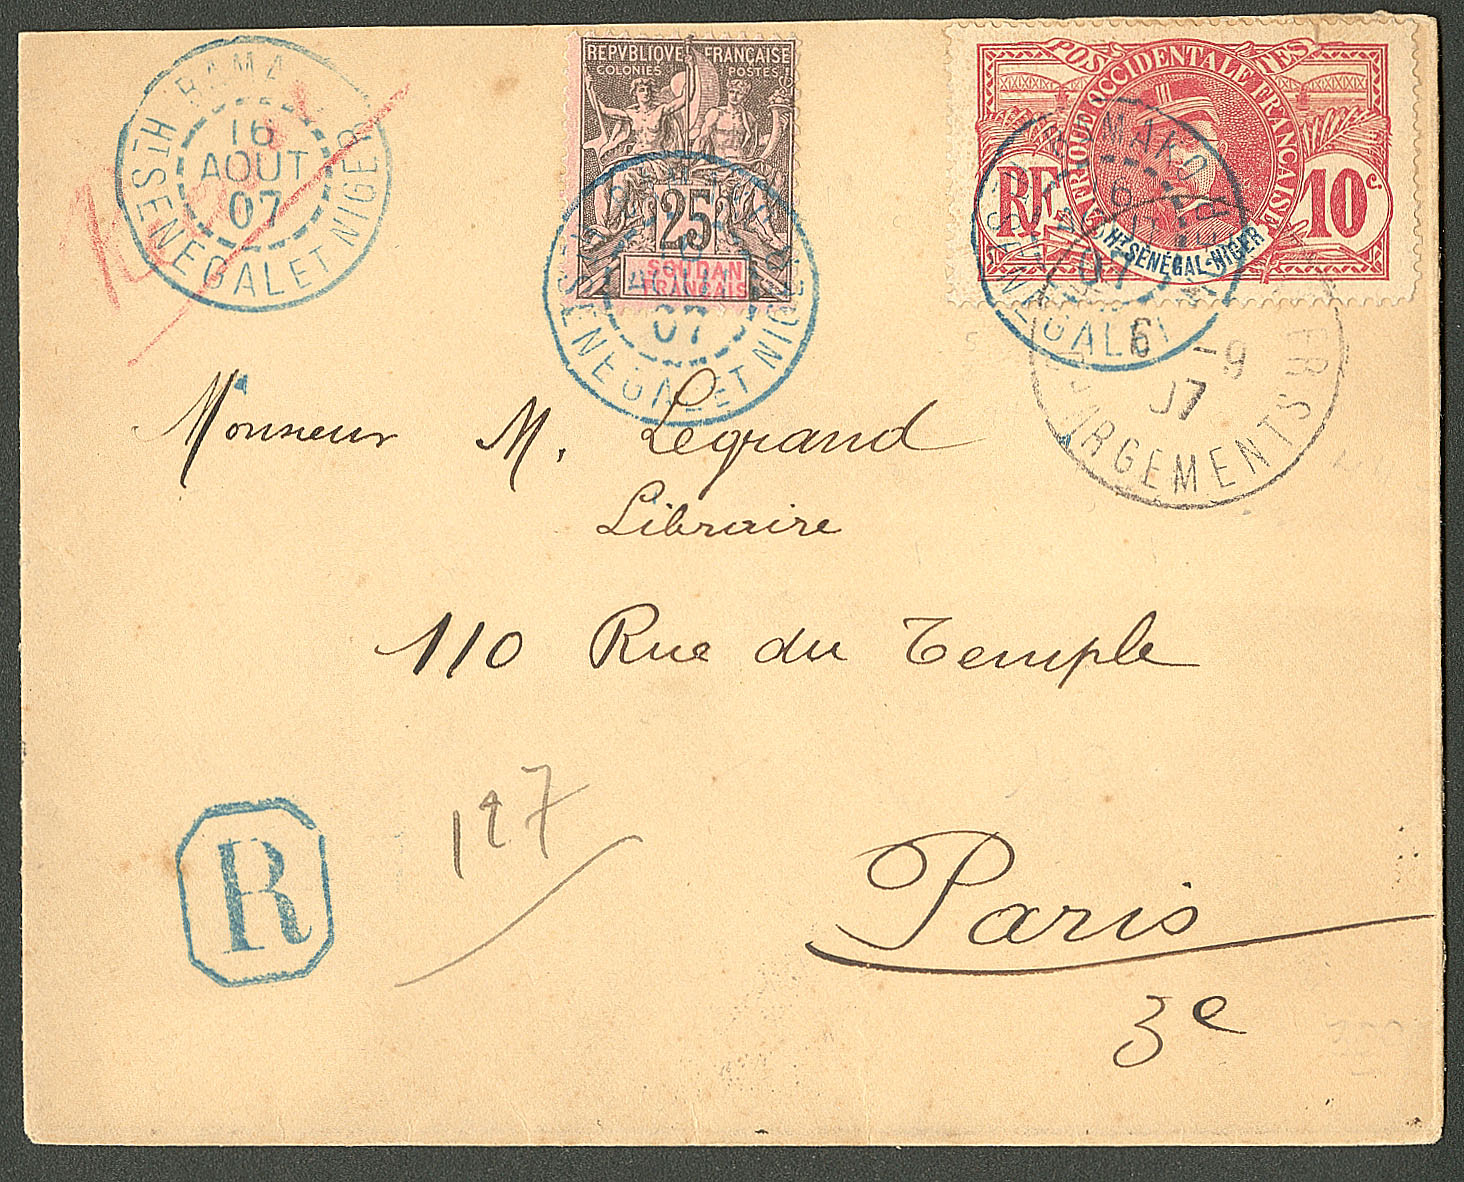 BAMAKO
16
AOUT
07
HT SENEGAL ET NIGER
REPVBLIQVE FRANÇAISE
COLONIES POSTES
25
SOUDAN
FRANÇAIS
07
SENEGAL ET NIGER
POSTES
AFRIQUE OCCIDENTALE FRANÇAISE
RF
10c
Ht SÉNÉGAL-NIGER
BAMAKO
07
6 -9
07
CHARGEMENTS
Monsieur M. Legrand
Libraire
110 Rue du Temple
127
R
Paris
3e